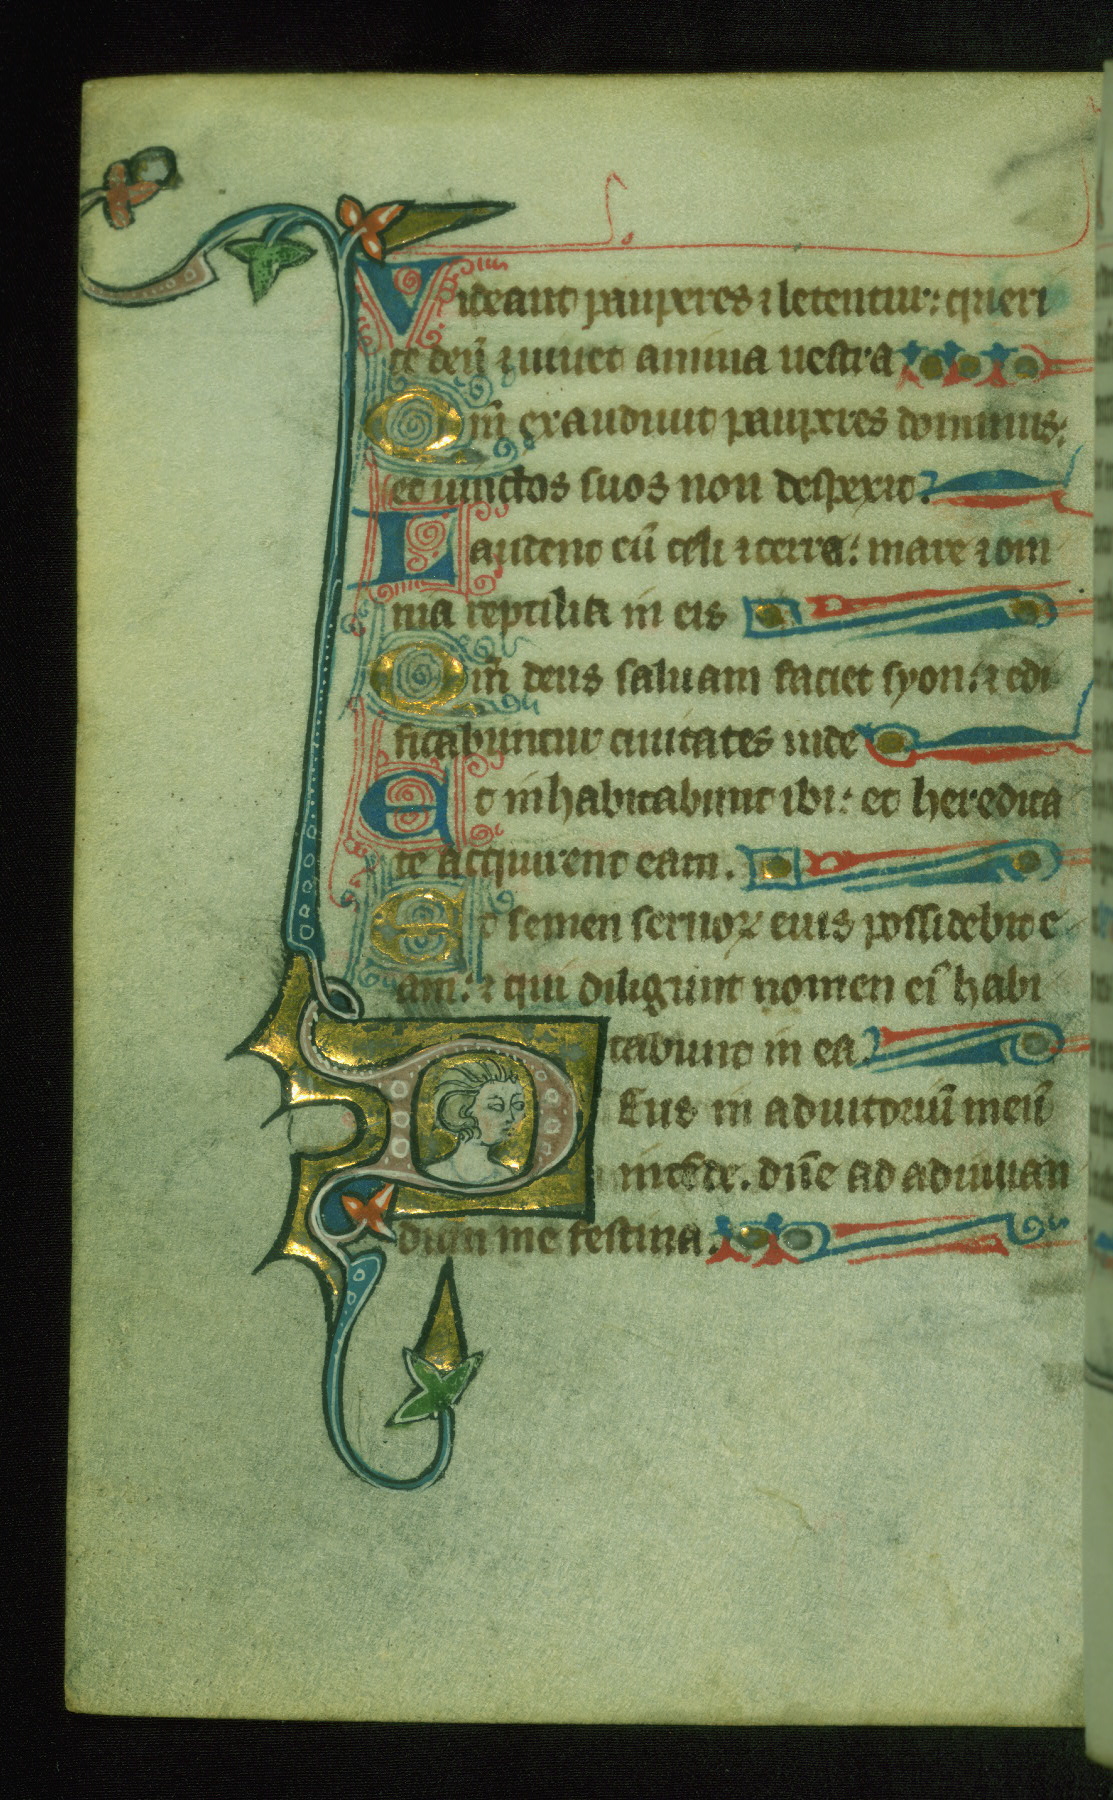 Videant pauperes ⁊ letentur: queri
te deū ⁊ uiuet anima uestra
Qm̄ exaudiuit pauperes dominus:
et uinctos suos non despexit.
Laudent eū celi ⁊ terra: mare ⁊ om
nia reptilia in eis
Qm̄ deus saluam faciet syon: ⁊ edi
ficabuntur ciuitates iude
Et inhabitabunt ibi: et heredita
te acquirent eam.
Et semen seruoꝝ eius possidebit e
am: ⁊ qui diligunt nomen ei᷒ habi
tabunt in ea
Deus in adiutoriū meū
intede. dn̄e ad adiuuan
dum me festina.